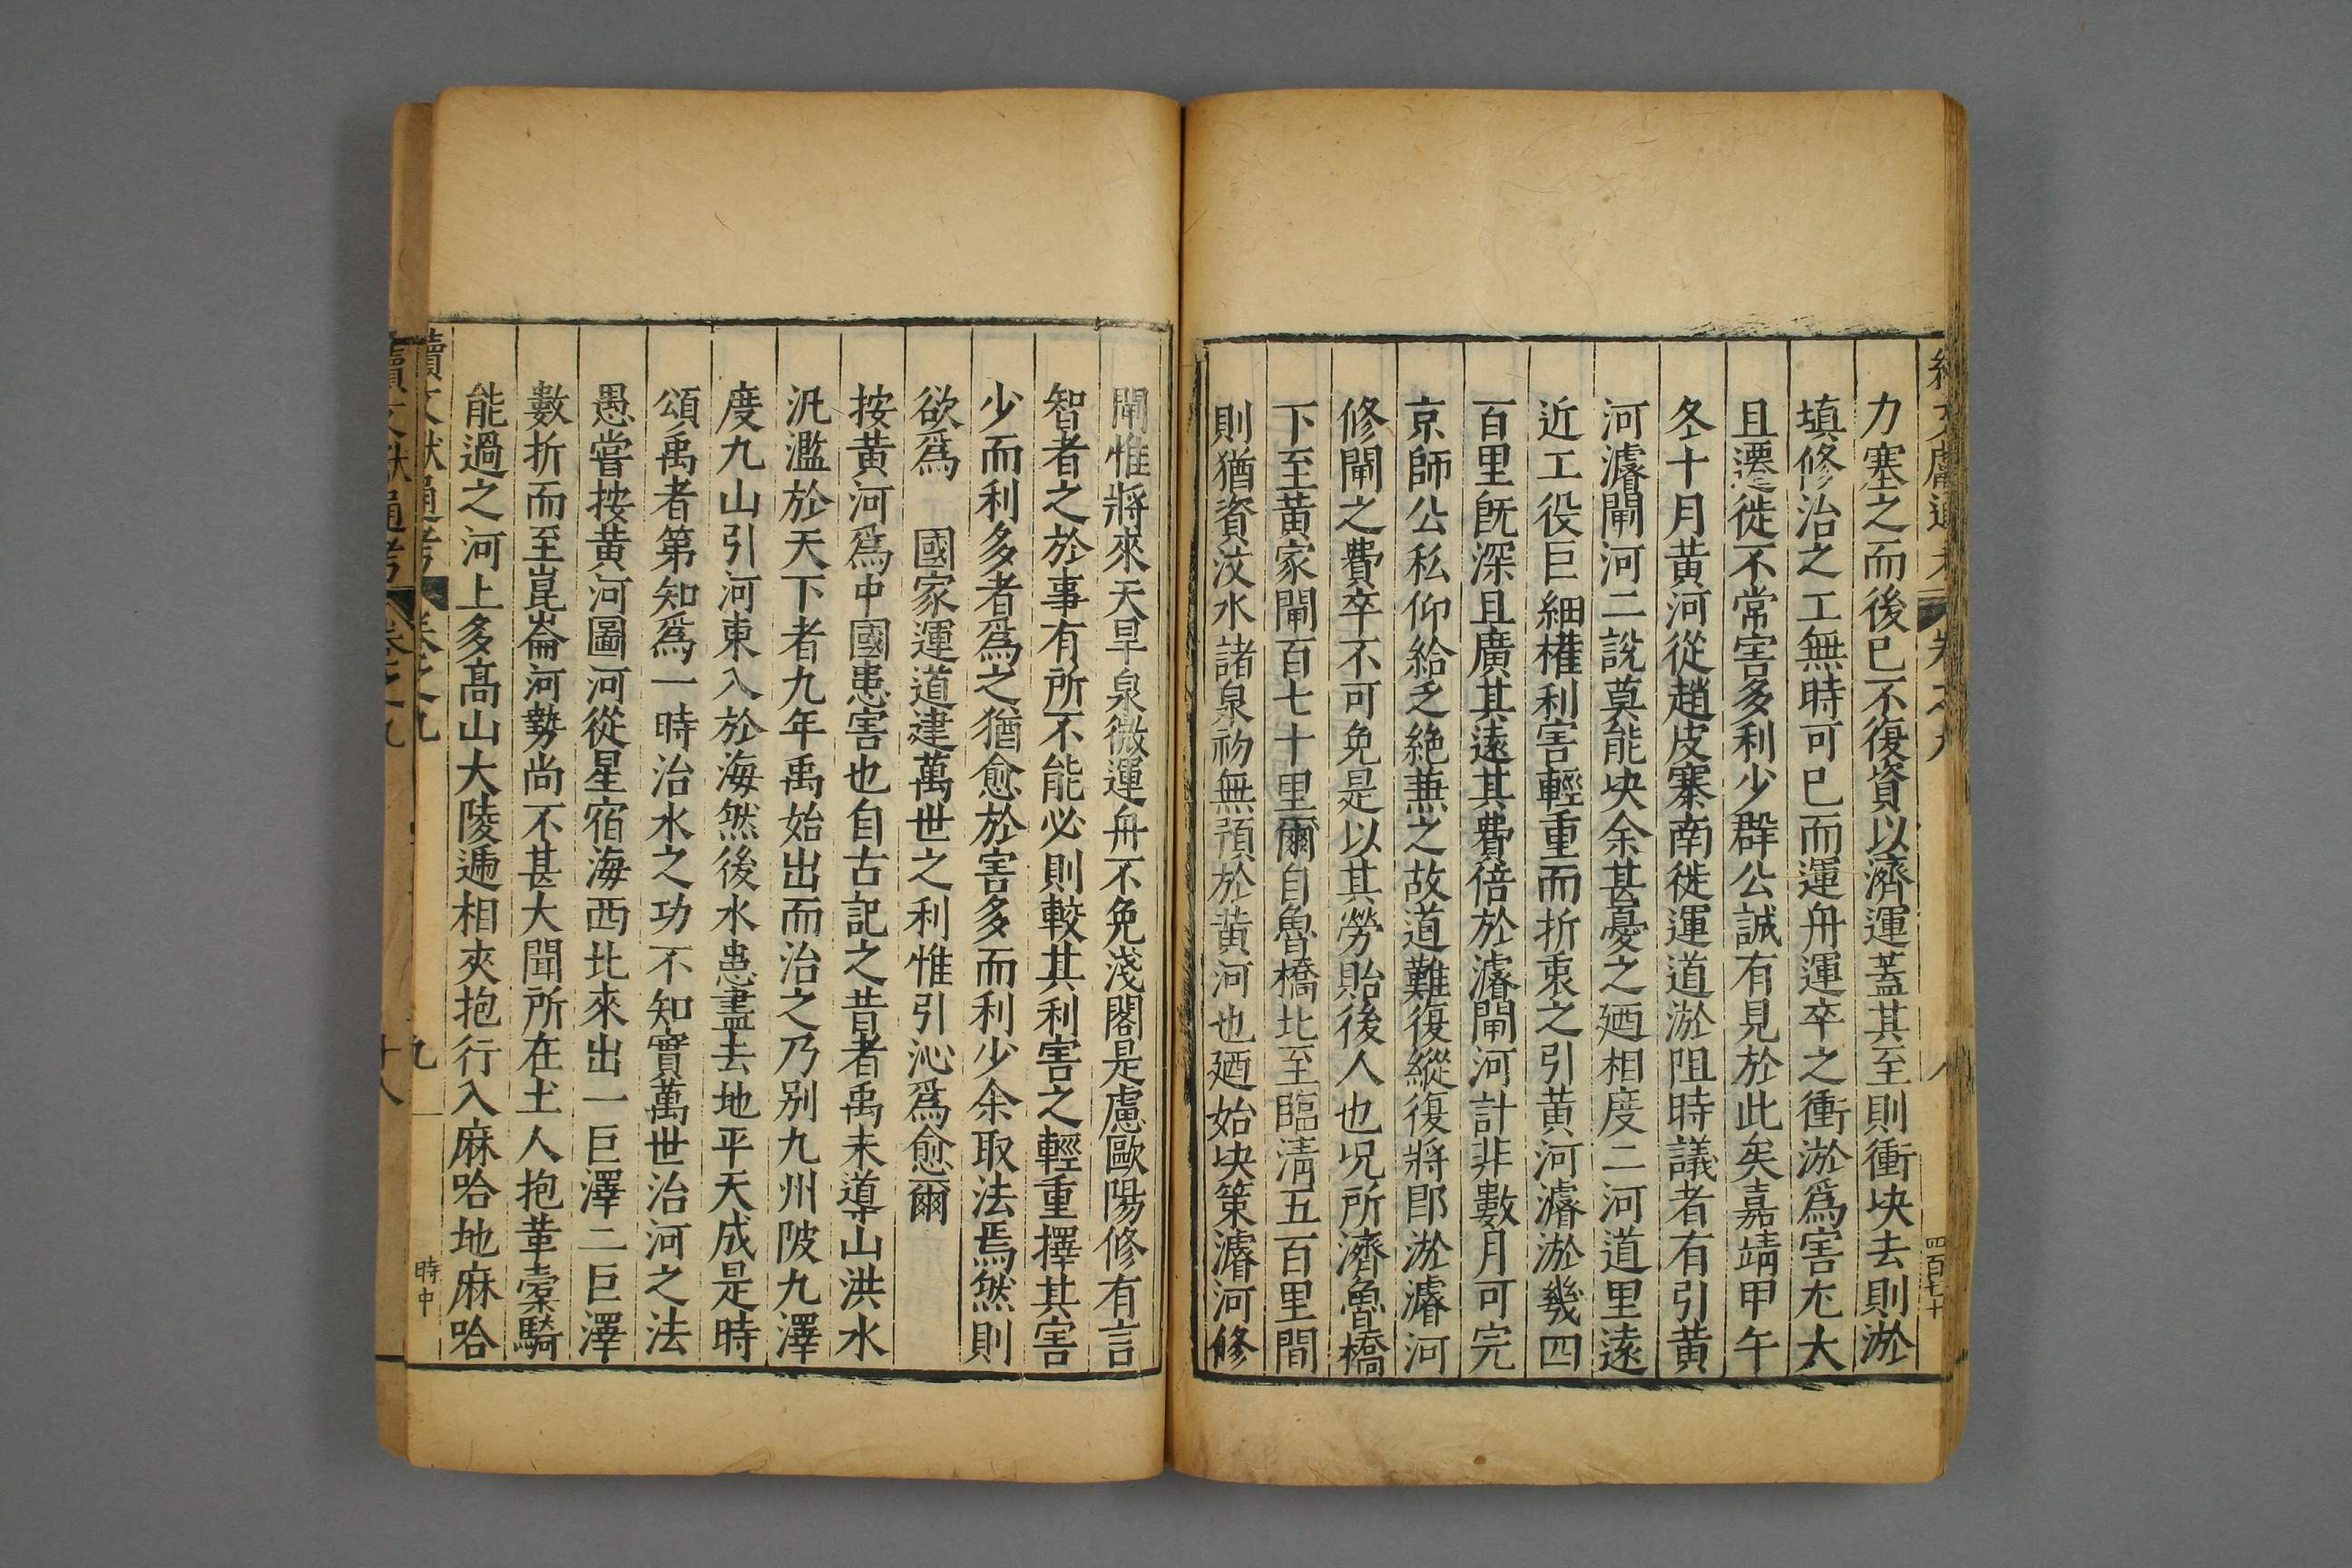 力塞之而後已不復資以濟運蓋其至則衝决去則淤
填修治之工無時可已而運舟運卒之衝淤爲害尤大
且遷徙不常害多利少群公誠有見於此矣嘉靖甲午
冬十月黄河從趙皮寨南徙運道淤阻時議者有引黄
河濬閘河二說莫能决余甚憂之廼相度二河道里遠
近工役巨細權利害輕重而折衷之引黄河濬淤幾四
百里旣深且廣其遠其費倍於濬閘河計非數月可完
京師公私仰給乏絶蕪之故道難復縱復將即淤濬河
修閘之費卒不可免是以其勞貽後人也况所濟魯橋
下至黄家閘百七十里爾自魯橋北至臨淸五百里間
則猶資汶水諸泉初無預於黄河也廼始决策濬河修
閘惟將來天旱泉微運舟不免淺閣是慮歐陽修有言
智者之於事有所不能必則較其利害之輕重擇其害
少而利多者爲之猶愈於害多而利少余取法焉然則
欲爲 國家運道建萬世之利惟引沁爲愈爾
按黄河爲中國患害也自古記之昔者禹未導山洪水
汎濫於天下者九年禹始出而治之乃别九州陂九澤
度九山引河東入於海然後水患盡去地平天成是時
頌禹者第知爲一時治水之功不知實萬世治河之法
愚嘗按黄河圖河從星宿海西北來出一巨澤二巨澤
數折而至崑崙河勢尚不甚大聞所在土人抱革橐騎
能過之河上多高山大陵逓相夾抱行入麻哈地麻哈
續文獻通考 卷之九 九 時中